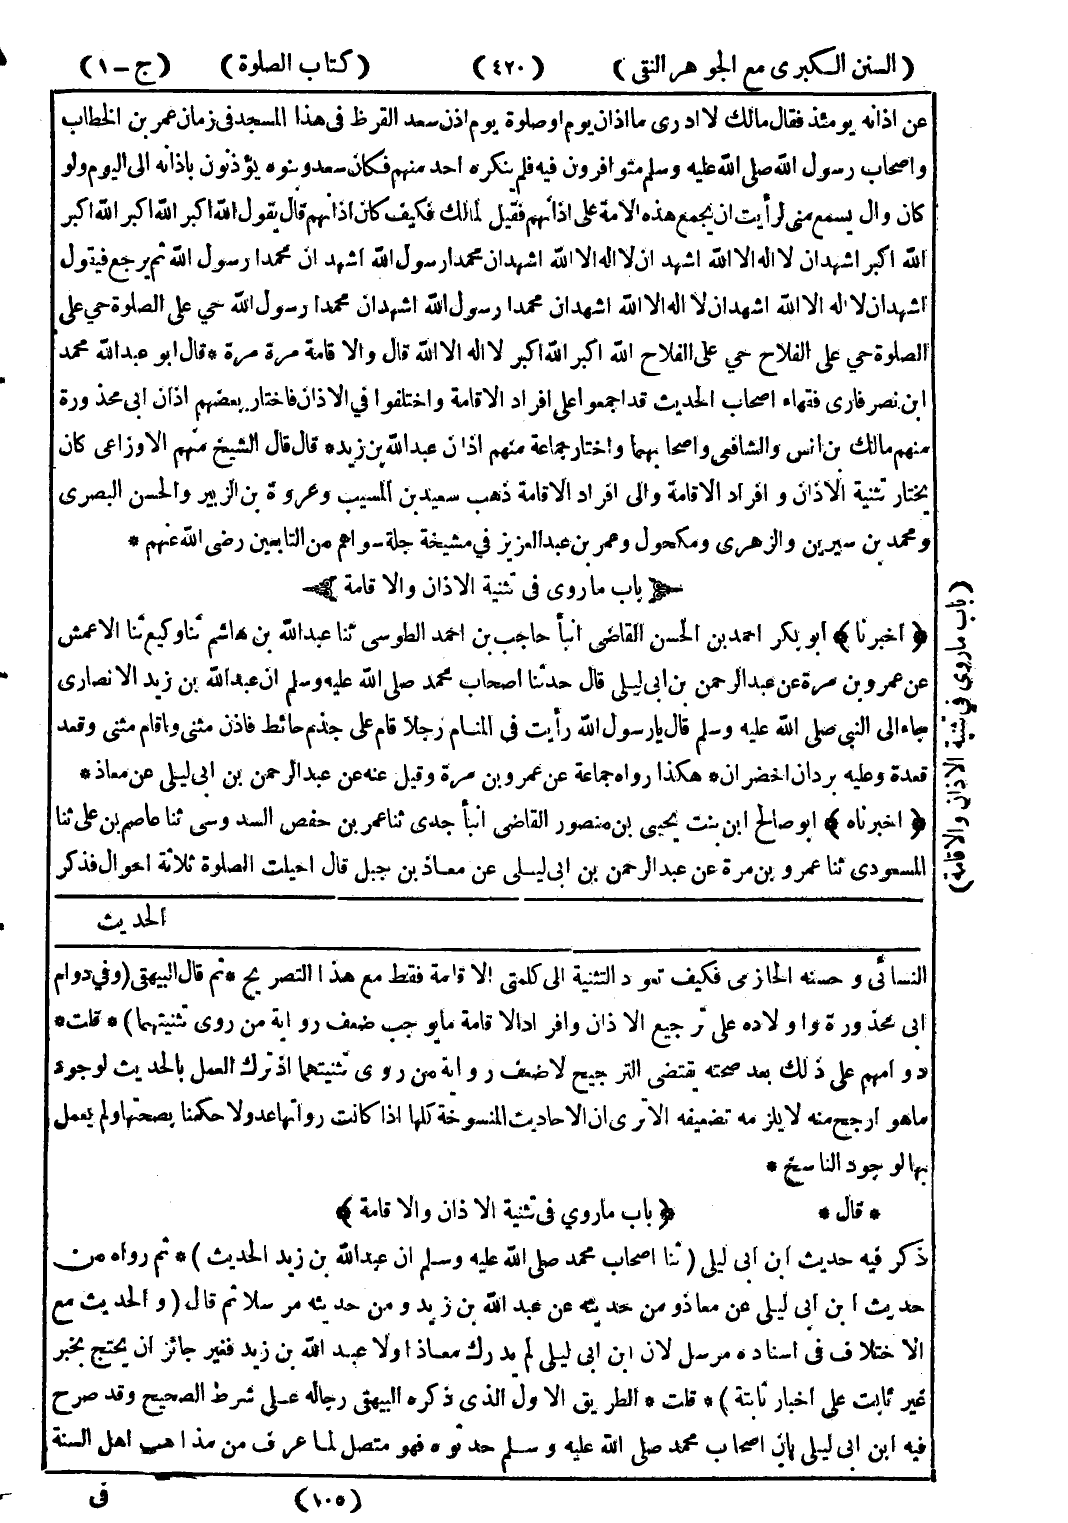 (السنن الكبرى مع الجوهر النقى) (٤٢٠) (كتاب الصلوة) (ج-١)
عن اذانه يومئذ فقال مالك لا ادرى ما اذان يوم او صلوة يوم اذن سعد القرظ فى هذا المسجد فى زمان عمر بن الخطاب
واصحاب رسول الله صلى الله عليه وسلم متوافرون فيه فلم ينكره احد منهم فكان سعد وبنوه يؤذنون باذانه الى اليوم ولو
كان وال يسمع منى لرأيت ان يجمع هذه الامة على اذانهم فقيل لمالك فكيف كان اذانهم قال يقول الله اكبر الله اكبر الله اكبر
الله اكبر اشهد ان لا اله الا الله اشهد ان لا اله الا الله اشهد ان محمدا رسول الله اشهد ان محمدا رسول الله ثم يرجع فيقول
اشهد ان لا اله الا الله اشهد ان لا اله الا الله اشهد ان محمدا رسول الله اشهد ان محمدا رسول الله حي على الصلوة حي على
الصلوة حي على الفلاح حي على الفلاح الله اكبر الله اكبر لا اله الا الله قال والاقامة مرة مرة * قال ابو عبد الله محمد
ابن نصر فارى فقهاء اصحاب الحديث قد اجمعوا على افراد الاقامة واختلفوا في الاذان فاختار بعضهم اذان ابى محذورة
منهم مالك بن انس والشافعي واصحابهما واختار جماعة منهم اذان عبد الله بن زيد * قال قال الشيخ منهم الاوزاعى كان
يختار تثنية الاذان وافراد الاقامة والى افراد الاقامة ذهب سعيد بن المسيب وعروة بن الزبير والحسن البصرى
ومحمد بن سيرين والزهرى ومكحول وعمر بن عبد العزيز في مشيخة جلة سواهم من التابعين رضى الله عنهم *
باب ما روى فى تثنية الاذان والاقامة
﴿اخبرنا﴾ ابو بكر احمد بن الحسن القاضى انبأ حاجب بن احمد الطوسى ثنا عبد الله بن هاشم ثنا وكيع ثنا الاعمش
عن عمرو بن مرة عن عبد الرحمن بن ابى ليلى قال حدثنا اصحاب محمد صلى الله عليه وسلم ان عبد الله بن زيد الانصارى
جاء الى النبى صلى الله عليه وسلم قال يا رسول الله رأيت فى المنام رجلا قام على جذم حائط فاذن مثنى واقام مثنى وقعد
قعدة وعليه بردان اخضران * هكذا رواه جماعة عن عمرو بن مرة وقيل عنه عن عبد الرحمن بن ابى ليلى عن معاذ *
﴿اخبرناه﴾ ابو صالح ابن بنت يحيى بن منصور القاضى انبأ جدى ثنا عمر بن حفص السدوسى ثنا عاصم بن على ثنا
المسعودى ثنا عمرو بن مرة عن عبد الرحمن بن ابى ليلى عن معاذ بن جبل قال احيلت الصلوة ثلاثة احوال فذكر
الحديث
(باب ما روى في تثنية الاذان والاقامة)
النسائى وحسنه الحازمى فكيف تعود التثنية الى كلمتى الاقامة فقط مع هذا التصريح * ثم قال البيهقى (وفي دوام
ابى محذورة واولاده على ترجيع الاذان وافراد الاقامة ما يوجب ضعف رواية من روى تثنيتهما) * قلت *
دوامهم على ذلك بعد صحته يقتضى الترجيح لا ضعف رواية من روى تثنيتهما اذ ترك العمل بالحديث لوجود
ما هو ارجح منه لا يلزمه تضعيفه الا ترى ان الاحاديث المنسوخة كلها اذا كانت رواتها عدولا حكمنا بصحتها ولم يعمل
بها لوجود الناسخ *
* قال * ﴿باب ما روي فى تثنية الاذان والاقامة﴾
ذكر فيه حديث ابن ابى ليلى (ثنا اصحاب محمد صلى الله عليه وسلم ان عبد الله بن زيد الحديث) * ثم رواه من
حديث ابن ابى ليلى عن معاذ ومن حديثه عن عبد الله بن زيد ومن حديثه مرسلا ثم قال (والحديث مع
الاختلاف فى اسناده مرسل لان ابن ابى ليلى لم يدرك معاذا ولا عبد الله بن زيد فغير جائز ان يحتج بخبر
غير ثابت على اخبار ثابتة) * قلت * الطريق الاول الذى ذكره البيهقى رجاله على شرط الصحيح وقد صرح
فيه ابن ابى ليلى بان اصحاب محمد صلى الله عليه وسلم حدثوه فهو متصل لما عرف من مذاهب اهل السنة
(١٠٥) فى